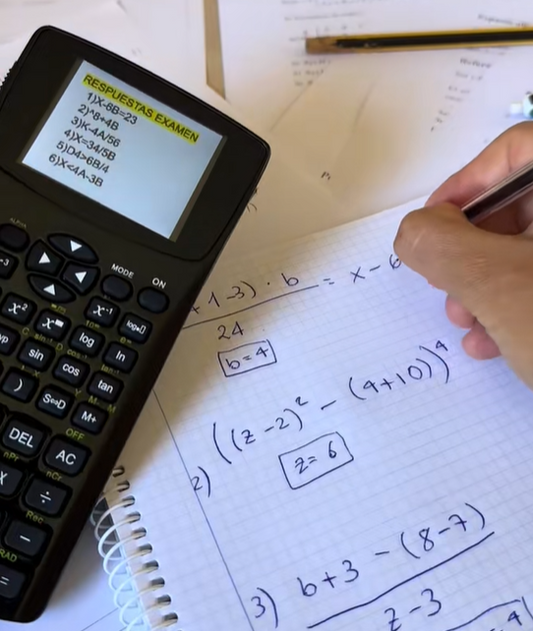 RESPUESTAS EXAMEN
1)X-8B=23
2)^8+4B
3)K-4A/56
4)X=34/5B
5)D4>6B/4
6)X<4A-3B
MODE
ON
x²
x■
x⁻¹
log
ln
sin
cos
tan
)
S⇔D
M+
DEL
OFF
AC
nPr
nCr
X
÷
Rec
−
RAD
=
+1-3) · b = x - 6
24
b=4
2) ((z-2)² - (4+10))⁴
z=6
3) b+3 - (8-7)
z-3